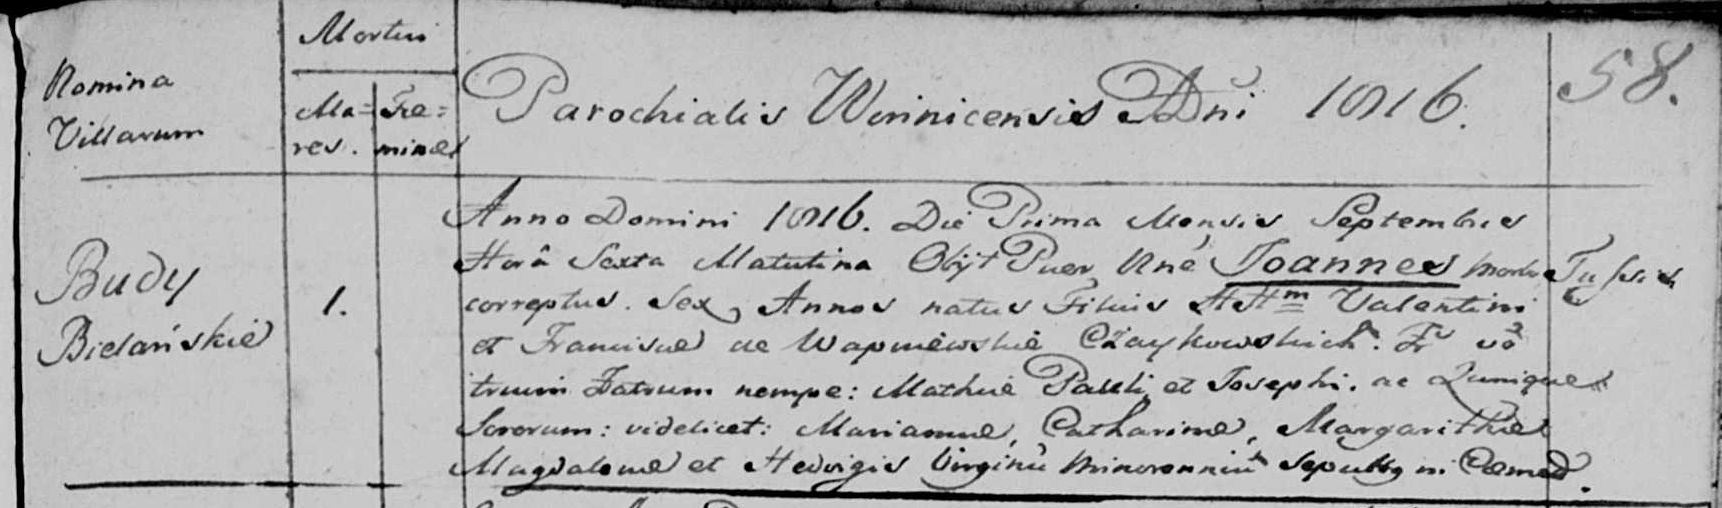 Nomina
Villarum
Mortui
Ma=
res.
Fe=
minae
Parochialis Winnicensis Dni 1816.
58.
Budy
Bielańskie
1.
Anno Domini 1816. Die Prima Mensis Septembris
Horâ Sexta Matutina Obijt Puer Nne Joannes morbo Tussis
correptus. Sex Annos natus Filius HHm Valentini
et Franciscae de Wapniewskie Czaykowskich.
trium Fratrum nempe: Mathiae Pauli et Josephi. ac Quinque
Sororum: videlicet: Mariannae, Catharinae, Margarithae
Magdalenae et Hedvigis Virginũ Minorenniũ Sepultg in Caemed.